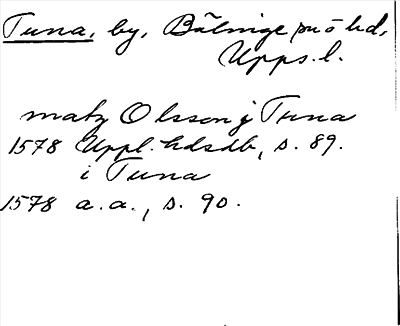 Tuna, by, Bälinge sn o hd,
Upps. l.
matz Olsson j Tuna
1578 Uppl. hdsdb, s. 89.
i Tuna
1578 a.a., s. 90.